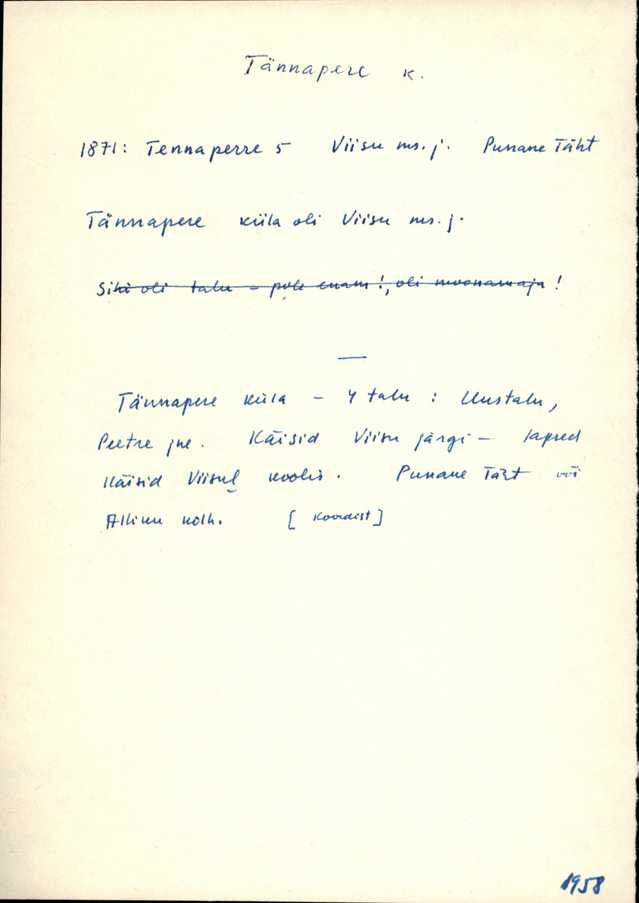 Tännapere k.
1871: Tennaperre 5 Viisu ms. j. Punane Täht
Tännapere küla oli Viisu ms. j.
Siki oli talu - pole enam!, oli moonamaja!
Tännapere küla - 4 talu: Uustalu,
Peetre jne. Käisid Viisu järgi - lapsed
käisid Viisul koolis. Punane Täht või
Alliku kolh. [Koordist]
1958